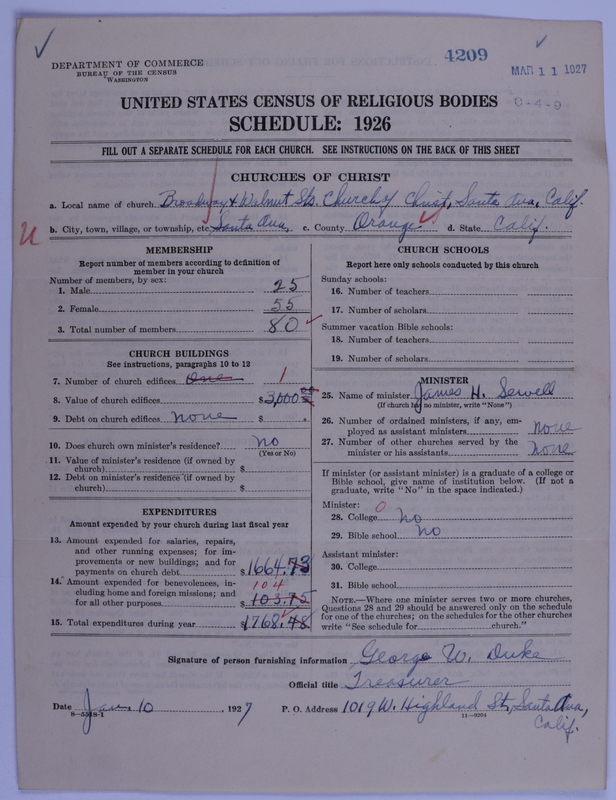 4209
DEPARTMENT OF COMMERCE
BUREAU OF THE CENSUS
WASHINGTON
MAR 11 1927
0-4-9
UNITED STATES CENSUS OF RELIGIOUS BODIES
SCHEDULE: 1926
FILL OUT A SEPARATE SCHEDULE FOR EACH CHURCH. SEE INSTRUCTIONS ON THE BACK OF THIS SHEET
CHURCHES OF CHRIST
a. Local name of church Broadway & Walnut Sts. Church of Christ, Santa Ana, Calif.
b. City, town, village, or township, etc. Santa Ana, c. County Orange d. State Calif.
MEMBERSHIP
Report number of members according to definition of
member in your church
Number of members, by sex:
1. Male 25
2. Female 55
3. Total number of members 80
CHURCH BUILDINGS
See instructions, paragraphs 10 to 12
7. Number of church edifices One 1
8. Value of church edifices $ 3,000
9. Debt on church edifices none $
10. Does church own minister's residence? No
(Yes or No)
11. Value of minister's residence (if owned by
church) $
12. Debt on minister's residence (if owned by
church) $
EXPENDITURES
Amount expended by your church during last fiscal year
13. Amount expended for salaries, repairs,
and other running expenses; for im-
provements or new buildings; and for
payments on church debt $ 1664.73
14. Amount expended for benevolences, in-
cluding home and foreign missions; and
for all other purposes 104
103.75
15. Total expenditures during year $1768.48
CHURCH SCHOOLS
Report here only schools conducted by this church
Sunday schools:
16. Number of teachers
17. Number of scholars
Summer vacation Bible schools:
18. Number of teachers
19. Number of scholars
MINISTER
25. Name of minister James H. Sewell
(If church has no minister, write "None")
26. Number of ordained ministers, if any, em-
ployed as assistant ministers none
27. Number of other churches served by the
minister or his assistants none
If minister (or assistant minister) is a graduate of a college or
Bible school, give name of institution below. (If not a
graduate, write "No" in the space indicated.)
Minister: 0
28. College No
29. Bible school No
Assistant minister:
30. College
31. Bible school
NOTE.—Where one minister serves two or more churches,
Questions 28 and 29 should be answered only on the schedule
for one of the churches; on the schedules for the other churches
write "See schedule for church."
Signature of person furnishing information George W. Duke
Official title Treasurer
Date Jan. 10, 1927 P. O. Address 1019 W. Highland St, Santa Ana,
Calif.
8—5518-1
11—9204